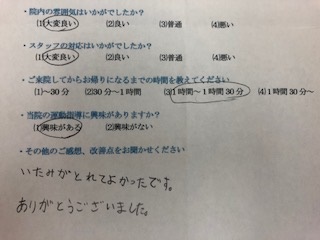 ・院内の雰囲気はいかがでしたか？
(1)大変良い (2)良い (3)普通 (4)悪い
・スタッフの対応はいかがでしたか？
(1)大変良い (2)良い (3)普通 (4)悪い
・ご来院してからお帰りになるまでの時間を教えてください
(1)～30分 (2)30分～1時間 (3)1時間～1時間30分 (4)1時間30分～
・当院の運動指導に興味がありますか？
(1)興味がある (2)興味がない
・その他のご感想、改善点をお聞かせください
いたみがとれてよかったです。
ありがとうございました。